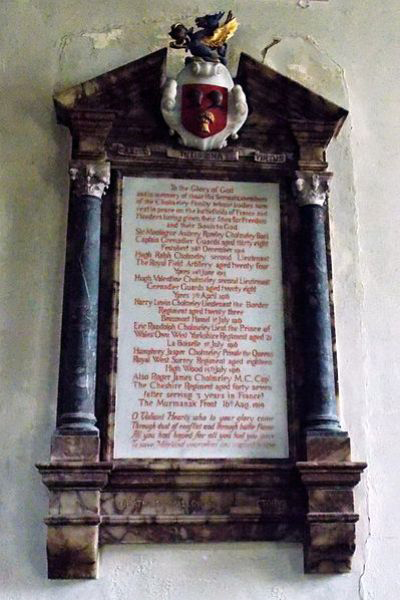 To the Glory of God
and in memory of those the Servants members
of the Cholmeley Family whose bodies now
rest in peace on the battlefields of France and
Flanders having given their lives for Freedom
and their Souls to God
Sir Montague Aubrey Rowley Cholmeley Bart
Captain Grenadier Guards aged thirty eight
Festubert 24th December 1914
Hugh Ralph Cholmeley second Lieutenant
The Royal Field Artillery aged twenty four
Ypres 1915
Hugh Valentine Cholmeley second Lieutenant
Grenadier Guards aged twenty eight
Ypres 7th April 1916
Harry Lewin Cholmeley Lieutenant the Border
Regiment aged twenty three
Beaumont Hamel 1st July 1916
Eric Randolph Cholmeley Lieut the Prince of
Wales Own West Yorkshire Regiment aged 21
La Boiselle July 1916
Humphrey Jasper Cholmeley Private the Queens
Royal West Surrey Regiment aged eighteen
High Wood 15th July 1916
Also Roger James Cholmeley M.C. Capt
The Cheshire Regiment aged forty seven
after serving 3 years in France
The Murmansk Front 16th Aug. 1919
O Valiant Hearts who to your glory came
Through dust of conflict and through battle flame